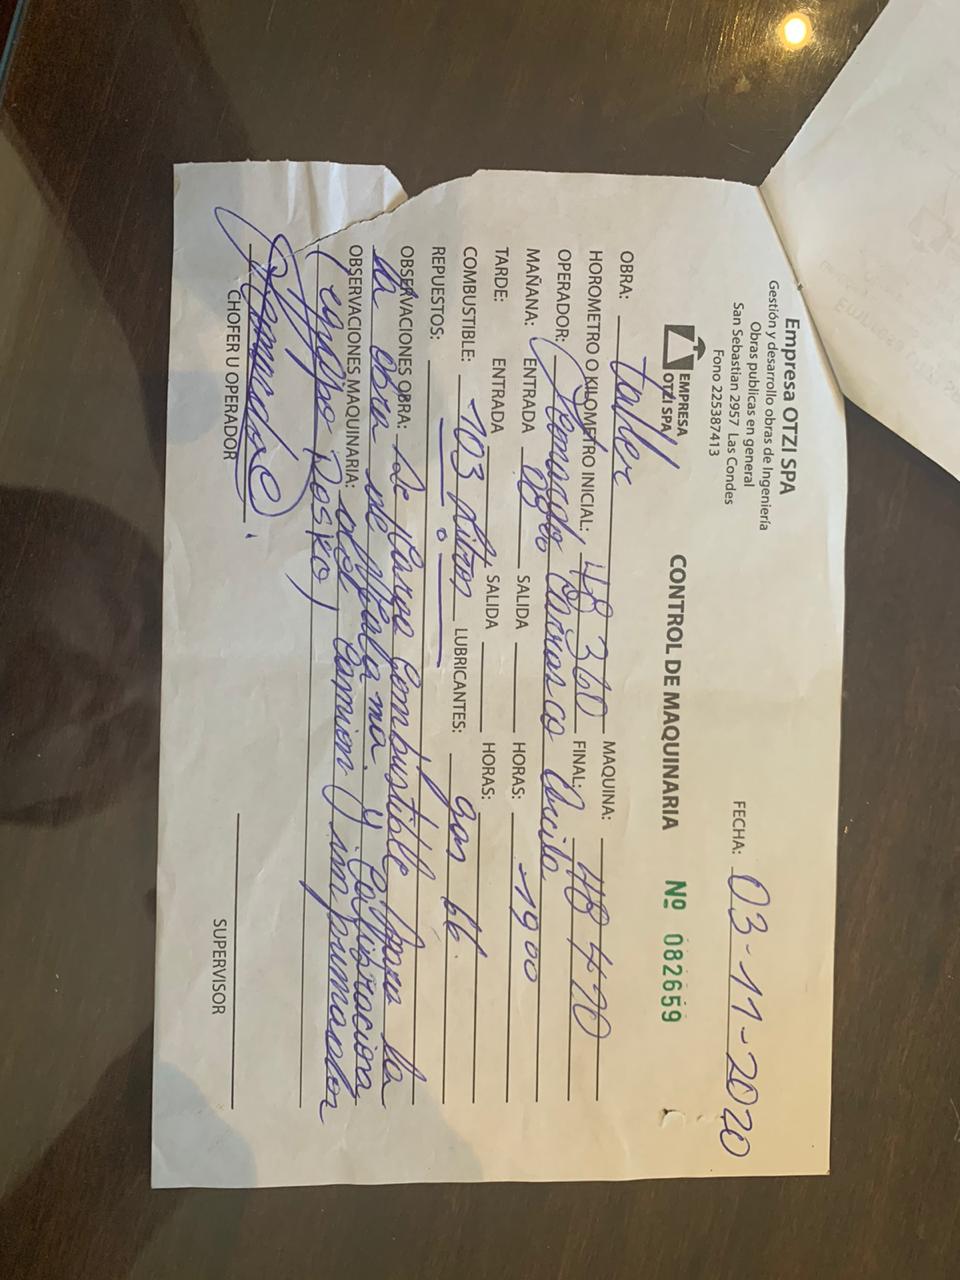 Empresa OTZI SPA
Gestión y desarrollo obras de Ingeniería
Obras publicas en general
San Sebastian 2957 Las Condes
Fono 225387413
FECHA: 03-11-2020
EMPRESA
OTZI SPA
CONTROL DE MAQUINARIA Nº 082659
OBRA: taller MAQUINA:
HOROMETRO O KILOMETRO INICIAL: 48 360 FINAL: 48 470
OPERADOR: Carrasco
MAÑANA: ENTRADA 0800 SALIDA HORAS: 1900
TARDE: ENTRADA SALIDA HORAS:
COMBUSTIBLE: 103 LUBRICANTES:
REPUESTOS:
OBSERVACIONES OBRA: Se combustible para la
la obra y
OBSERVACIONES MAQUINARIA: del camion imprimador
(equipo Rosko)
CHOFER U OPERADOR
SUPERVISOR